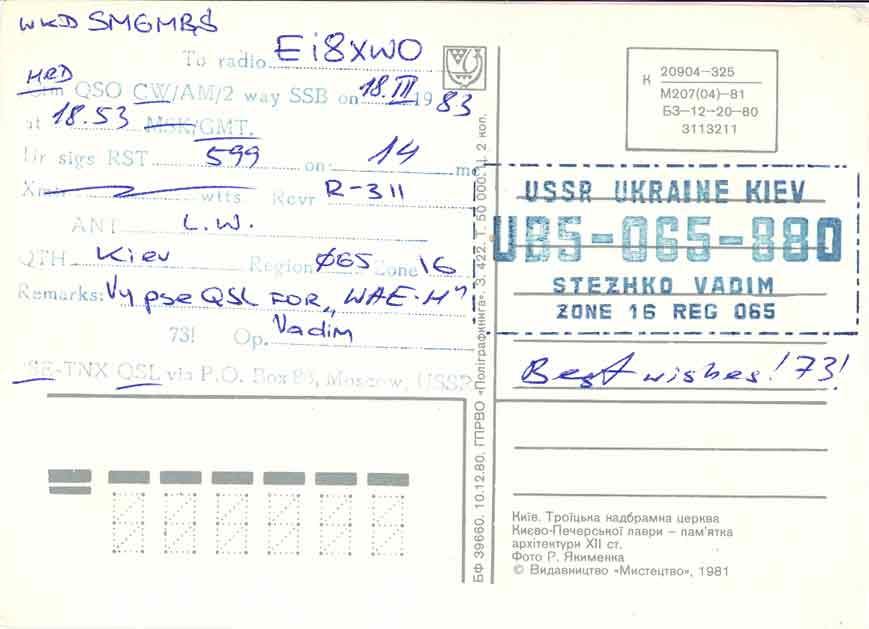 WKD SMGMBS
To radio Ei8XWO
HRD
QSO CW/AM/2 way SSB on 18.III 1983
at 18.53 MSK/GMT.
Ur sigs RST 599 on 14 mc
Xmtr wtts Rcvr R-311
ANT L.W.
QTH Kiev Region Ø65 Zone 16
Remarks: Vy pse QSL FOR „WAE-H"
73! Op. Vadim
PSE-TNX QSL via P.O. Box 88, Moscow, USSR
БФ 39660. 10.12.80. ГПРВО «Поліграфкнига». З. 422. Т. 50 000. Ц. 2 коп.
К 20904–325
М207(04)–81
БЗ–12–20–80
3113211
USSR UKRAINE KIEV
UB5-065-880
STEZHKO VADIM
ZONE 16 REG 065
Best wishes! 73!
Київ. Троїцька надбрамна церква
Києво-Печерської лаври – пам'ятка
архітектури XII ст.
Фото Р. Якименка
© Видавництво «Мистецтво», 1981